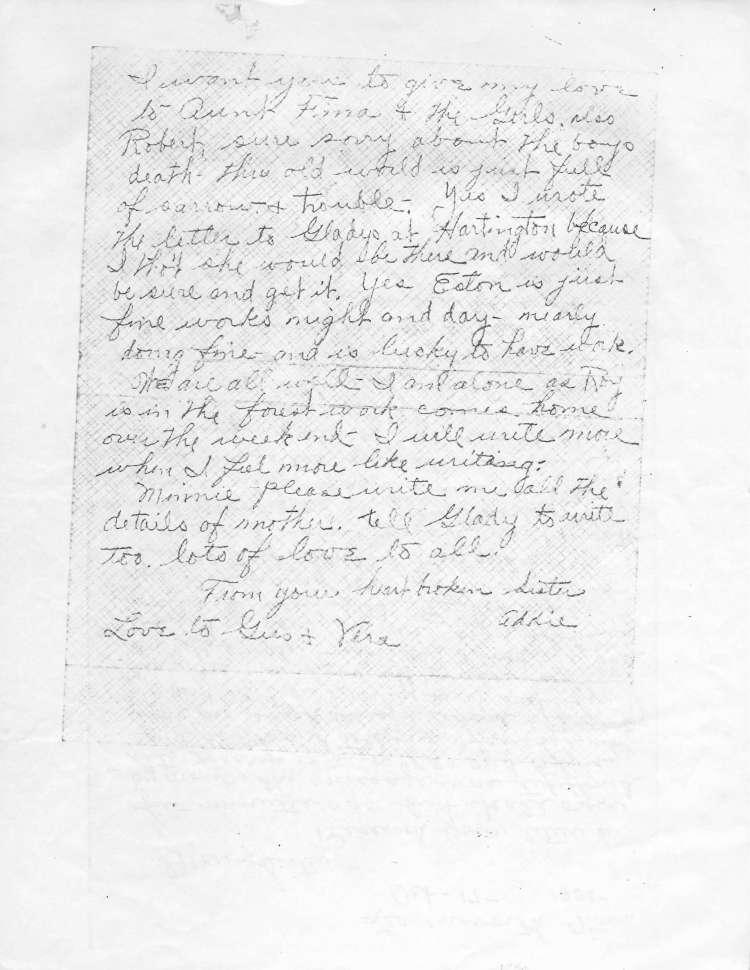 I want you to give my love
to Aunt Ema & the Girls, also
Robert, sure sorry about the boys
death - this old world is just full
of sarrow & trouble - Yes I wrote
the letter to Gladys at Hartington because
I tho't she would be there and would
be sure and get it. Yes Eston is just
fine works night and day - nearly
doing fine - and is lucky to have work.
We are all well - I am alone as Roy
is in the forest work comes home
over the week end - I will write more
when I feel more like writing.
Minnie please write me all the
details of mother. tell Glady to write
too. lots of love to all.
From your heart broken Sister
Addie
Love to Gus & Vera